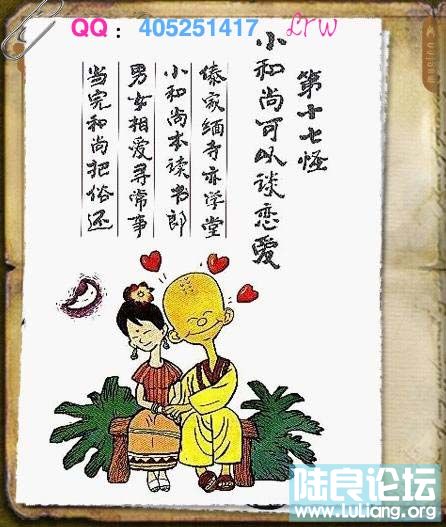 QQ：405251417 Lrw
第十七怪
小和尚可以谈恋爱
傣家缅寺亦学堂
小和尚本读书郎
男女相爱寻常事
当完和尚把俗还
陆良论坛
www.luliang.org